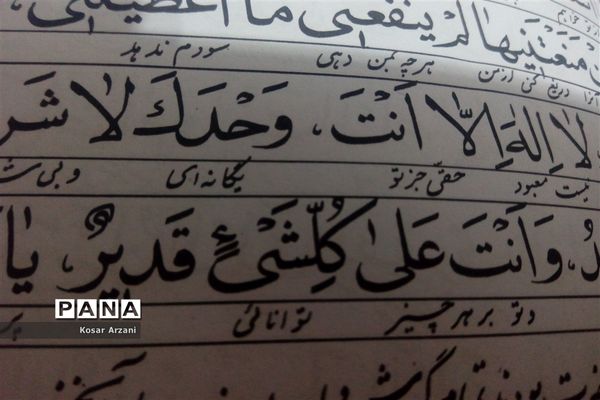 مَنَعْتَنیها لَمْ یَنْفَعْنی ما اَعْطَیْتَنی
دریغ کنی از من هرچه بمن دهی سودم ندهد
لا اِلهَ اِلاّ اَنْتَ، وَحْدَکَ لا شَر
نیست معبود حقّی جز تو یگانه‌ای و بی ش
دُ، وَاَنْتَ عَلی کُلِّشَیْءٍ قَدیرٌ، یا
و تو بر هر چیز توانائی
PANA
Kosar Arzani